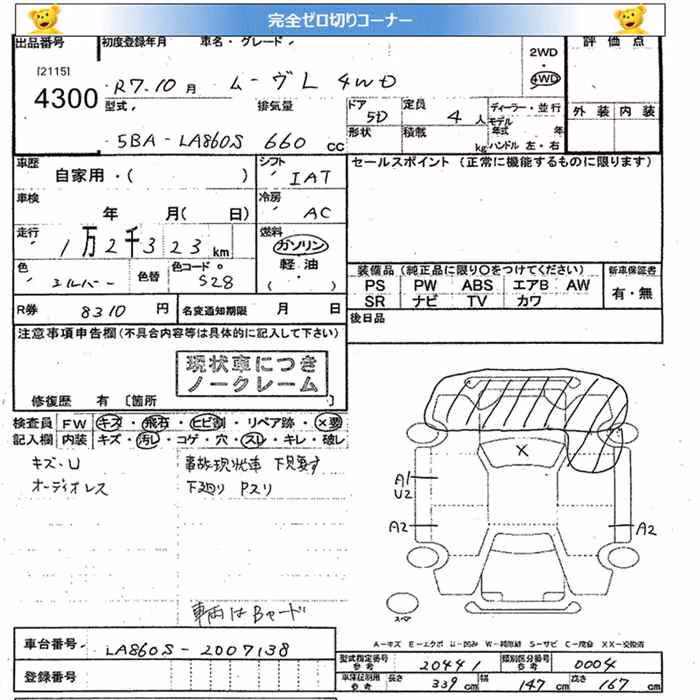 完全ゼロ切りコーナー
出品番号 初度登録年月 車名・グレード 2WD 評価点
[2115]
4300 R7.10月 ムーヴL 4WD 4WD
型式 排気量 ドア 5D 定員 4人 ディーラー・並行 外装 内装
5BA-LA860S 660cc 形状 積載 kg モデル年式 年
ハンドル 左・右
車歴 自家用・( ) シフト IAT セールスポイント (正常に機能するものに限ります)
車検 年 月(日) 冷房 AC
走行 1万2千323km 燃料 ガソリン
軽油
( )
色 シルバー 色替 色コード S28 装備品(純正品に限り〇をつけてください) 新車保証書
PS PW ABS エアB AW 有・無
SR ナビ TV カワ
R券 8310円 名変通知期限 月 日 後日品
注意事項申告欄(不具合内容等は具体的に記入して下さい)
現状車につき
ノークレーム
修復歴 有 〔箇所
検査員 FW キズ・飛石・ヒビ割・リペア跡・×要
記入欄 内装 キズ・汚レ・コゲ・穴・スレ・キレ・破レ
キズ・U 事故現状車 下見要す
オーディオレス 下廻り Pスリ
X
A1
U2
A2 A2
スペア
車両はBヤード
A-キズ E-エクボ U-凹み W-補修跡 S-サビ C-腐食 XX-交換済
車台番号 LA860S-2007138
型式指定番号参考 20441 類別区分番号参考 0004
登録番号
車庫証明用参考 長さ 339cm 幅 147cm 高さ 167cm